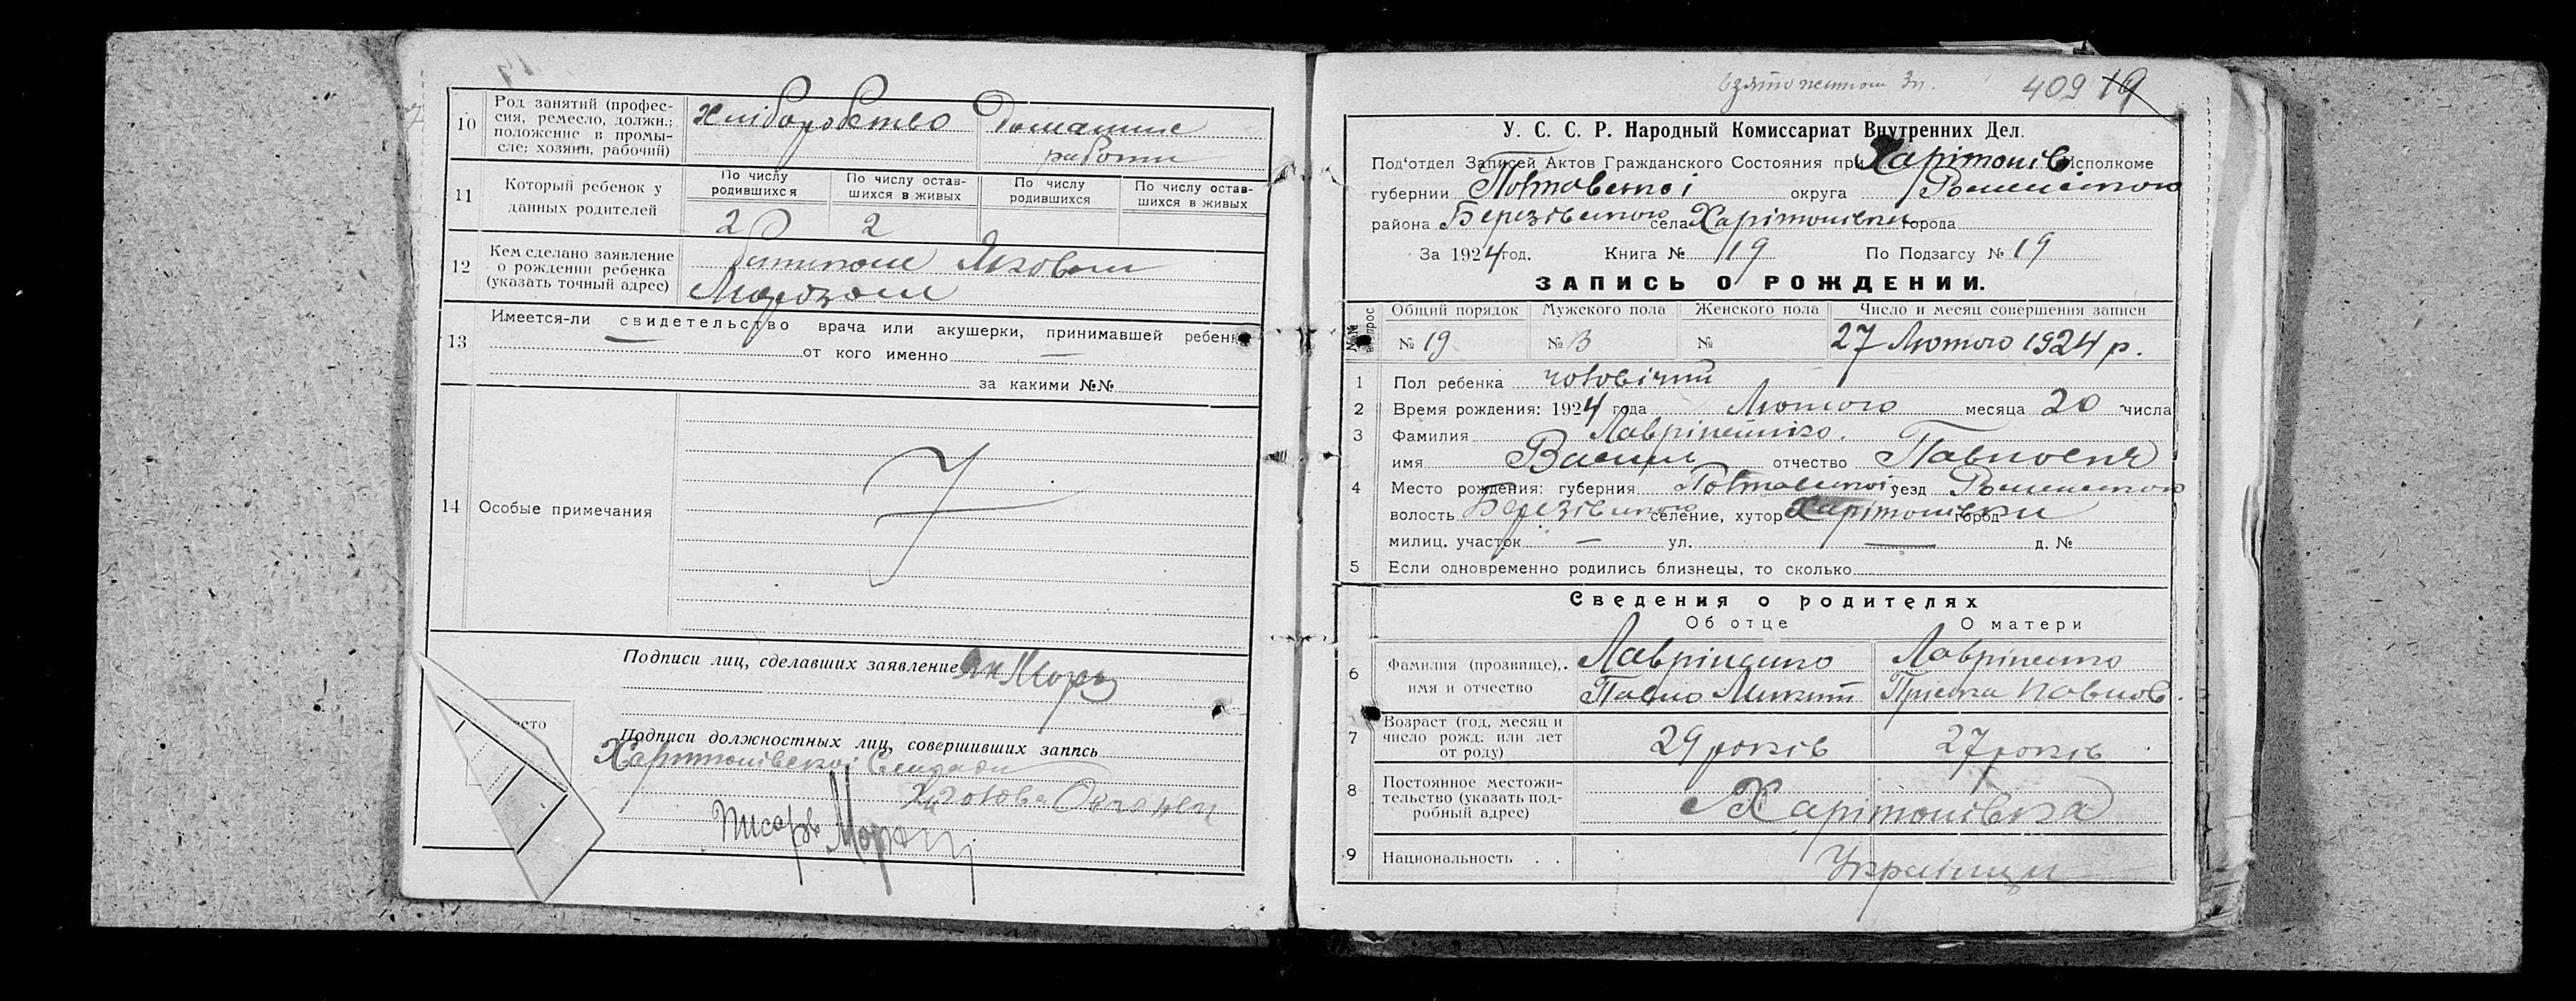 10 Род занятий (профес-
сия, ремесло, должн.;
положение в промы-
сле; хозяин, рабочий)
Хліборобство Домашнє
работи
11 Который ребенок у
данных родителей
По числу
родившихся
По числу остав-
шихся в живых
По числу
родившихся
По числу остав-
шихся в живых
2 2
12 Кем сделано заявление
о рождении ребенка
(указать точный адрес)
Яковом
Морозом
13 Имеется-ли свидетельство врача или акушерки, принимавшей ребенка
от кого именно —
за какими №№
14 Особые примечания
Подписи лиц, сделавших заявление Як Мороз
Подписи должностных лиц, совершивших запись
Харитонівської Сельради
Голова
Писарь
409 19
У. С. С. Р. Народный Комиссариат Внутренних Дел.
Под'отдел Записей Актов Гражданского Состояния при Харітонів Исполкоме
губернии Полтавської округа Роменського
района Березівського села Харітонівки города
За 1924 год. Книга № 19 По Подзагсу № 19
ЗАПИСЬ О РОЖДЕНИИ.
№№ вопрос
Общий порядок Мужского пола Женского пола Число и месяц совершения записи
№ 19 № 13 № 27 Лютого 1924 р.
1 Пол ребенка чоловічий
2 Время рождения: 1924 года Лютого месяца 20 числа
3 Фамилия Лавріненко.
имя Василь отчество Павлович
4 Место рождения: губерния Полтавської уезд Роменського
волость Березівського селение, хутор Харітонівки город
милиц. участок — ул. — д. №
5 Если одновременно родились близнецы, то сколько
Сведения о родителях
Об отце О матери
6 Фамилия (прозвище),.
имя и отчество
Лавріненко Лавріненко
Павло Микит Пріська Павлов.
7 Возраст (год, месяц и
число рожд. или лет
от роду)
29 років 27 років
8 Постоянное местожи-
тельство (указать под-
робный адрес)
с Харітонівка
9 Национальность . .
Українци